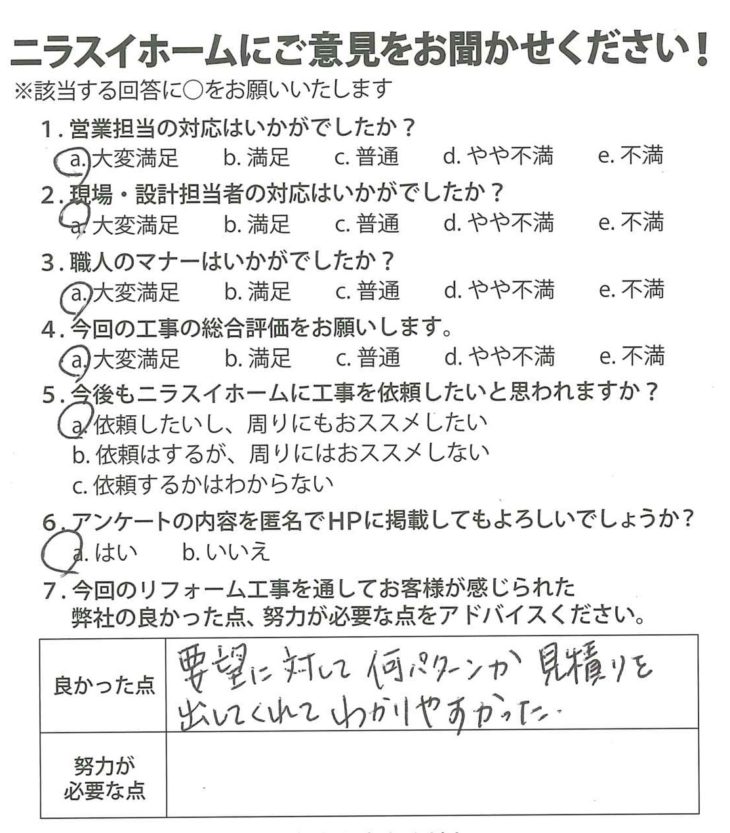 ニラスイホームにご意見をお聞かせください！
※該当する回答に○をお願いいたします
1. 営業担当の対応はいかがでしたか？
a. 大変満足 b. 満足 c. 普通 d. やや不満 e. 不満
2. 現場・設計担当者の対応はいかがでしたか？
a. 大変満足 b. 満足 c. 普通 d. やや不満 e. 不満
3. 職人のマナーはいかがでしたか？
a. 大変満足 b. 満足 c. 普通 d. やや不満 e. 不満
4. 今回の工事の総合評価をお願いします。
a. 大変満足 b. 満足 c. 普通 d. やや不満 e. 不満
5. 今後もニラスイホームに工事を依頼したいと思われますか？
a. 依頼したいし、周りにもおススメしたい
b. 依頼はするが、周りにはおススメしない
c. 依頼するかはわからない
6. アンケートの内容を匿名でHPに掲載してもよろしいでしょうか？
a. はい b. いいえ
7. 今回のリフォーム工事を通してお客様が感じられた
弊社の良かった点、努力が必要な点をアドバイスください。
良かった点
要望に対して何パターンか見積りを
出してくれてわかりやすかった.
努力が
必要な点